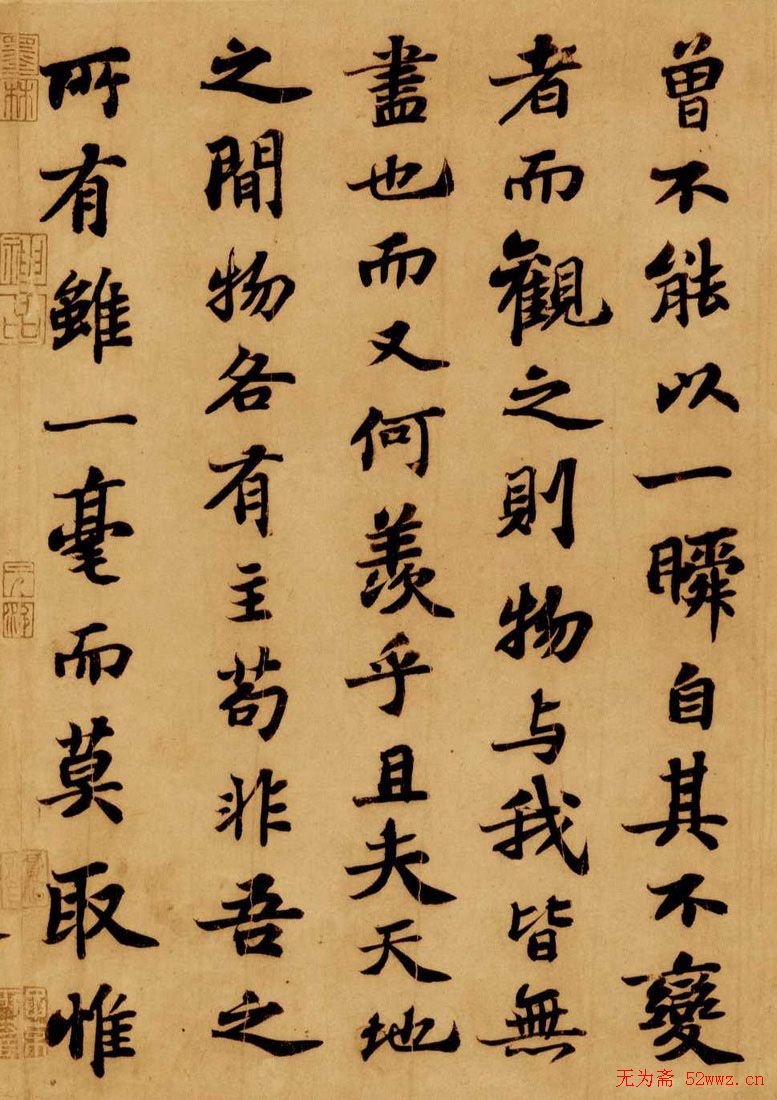 曾不能以一瞬自其不變
者而觀之則物與我皆無
盡也而又何羨乎且夫天地
之間物各有主苟非吾之
所有雖一毫而莫取惟
无为斋 52wwz.cn